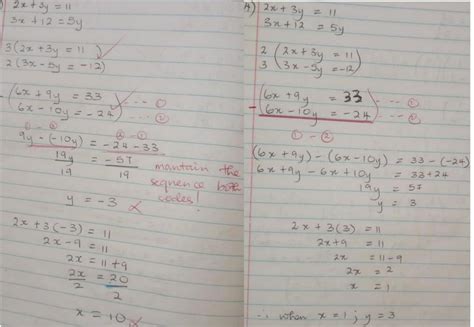 2x + 3y = 11
3x + 12 = 5y
3(2x + 3y = 11)
2(3x - 5y = -12)
(6x + 9y = 33) --- ①
(6x - 10y = -24) --- ②
① - ② ② - ①
9y - (-10y) = -24 - 33
19y = -57
19 19
maintain the
sequence both
codes!
y = -3 ×
2x + 3(-3) = 11
2x - 9 = 11
2x = 11 + 9
2x = 20
2 2
x = 10 ×
4) 2x + 3y = 11
3x + 12 = 5y
2 (2x + 3y = 11)
3 (3x - 5y = -12)
(6x + 9y = 33) --- ①
- (6x - 10y = -24) --- ②
① - ②
(6x + 9y) - (6x - 10y) = 33 - (-24)
6x + 9y - 6x + 10y = 33 + 24
19y = 57
y = 3
2x + 3(3) = 11
2x + 9 = 11
2x = 11 - 9
2x = 2
x = 1
∴ when x = 1 ; y = 3